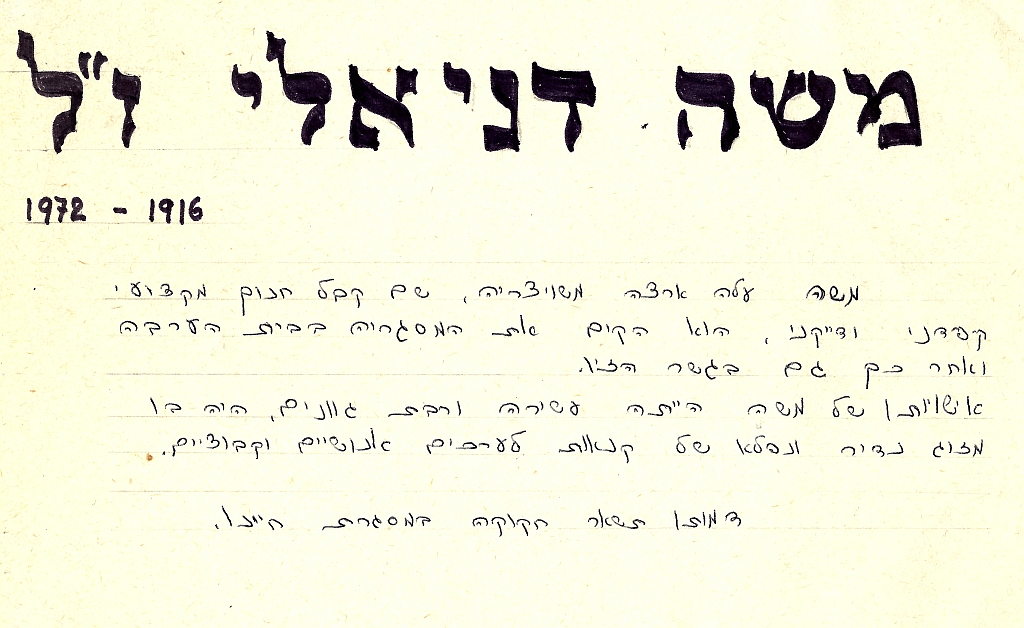 משה דניאלי ז"ל
1972 - 1916
משה עלה ארצה משויצריה, שם קבל חנוך מקצועי
קפדני ודייקני, הוא הקים את המסגריה בבית הערבה
ואחר כך גם בגשר הזיו.
אישיותו של משה הייתה עשירה ורבת גוונים, היה בו
מזוג נדיר ונפלא של קנאות לערכים אנושיים וקבוציים.
דמותו תשאר חקוקה במסגרת חיינו.